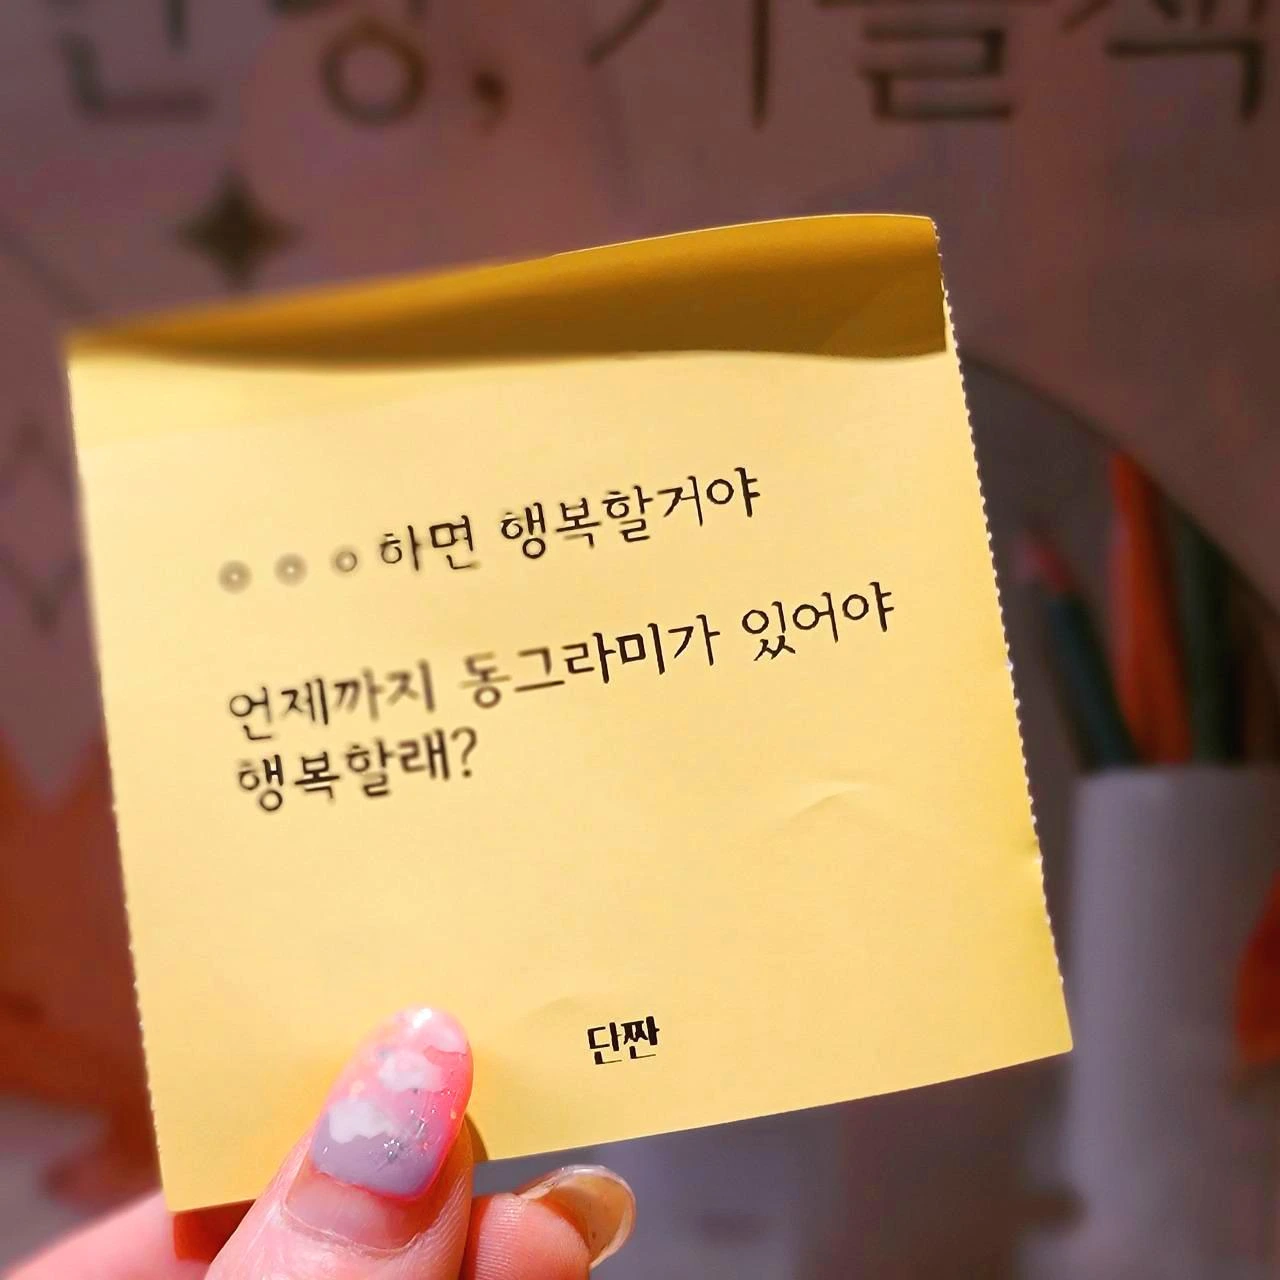 안녕, 겨울책
ㅇㅇㅇ하면 행복할거야
언제까지 동그라미가 있어야
행복할래?
단짠